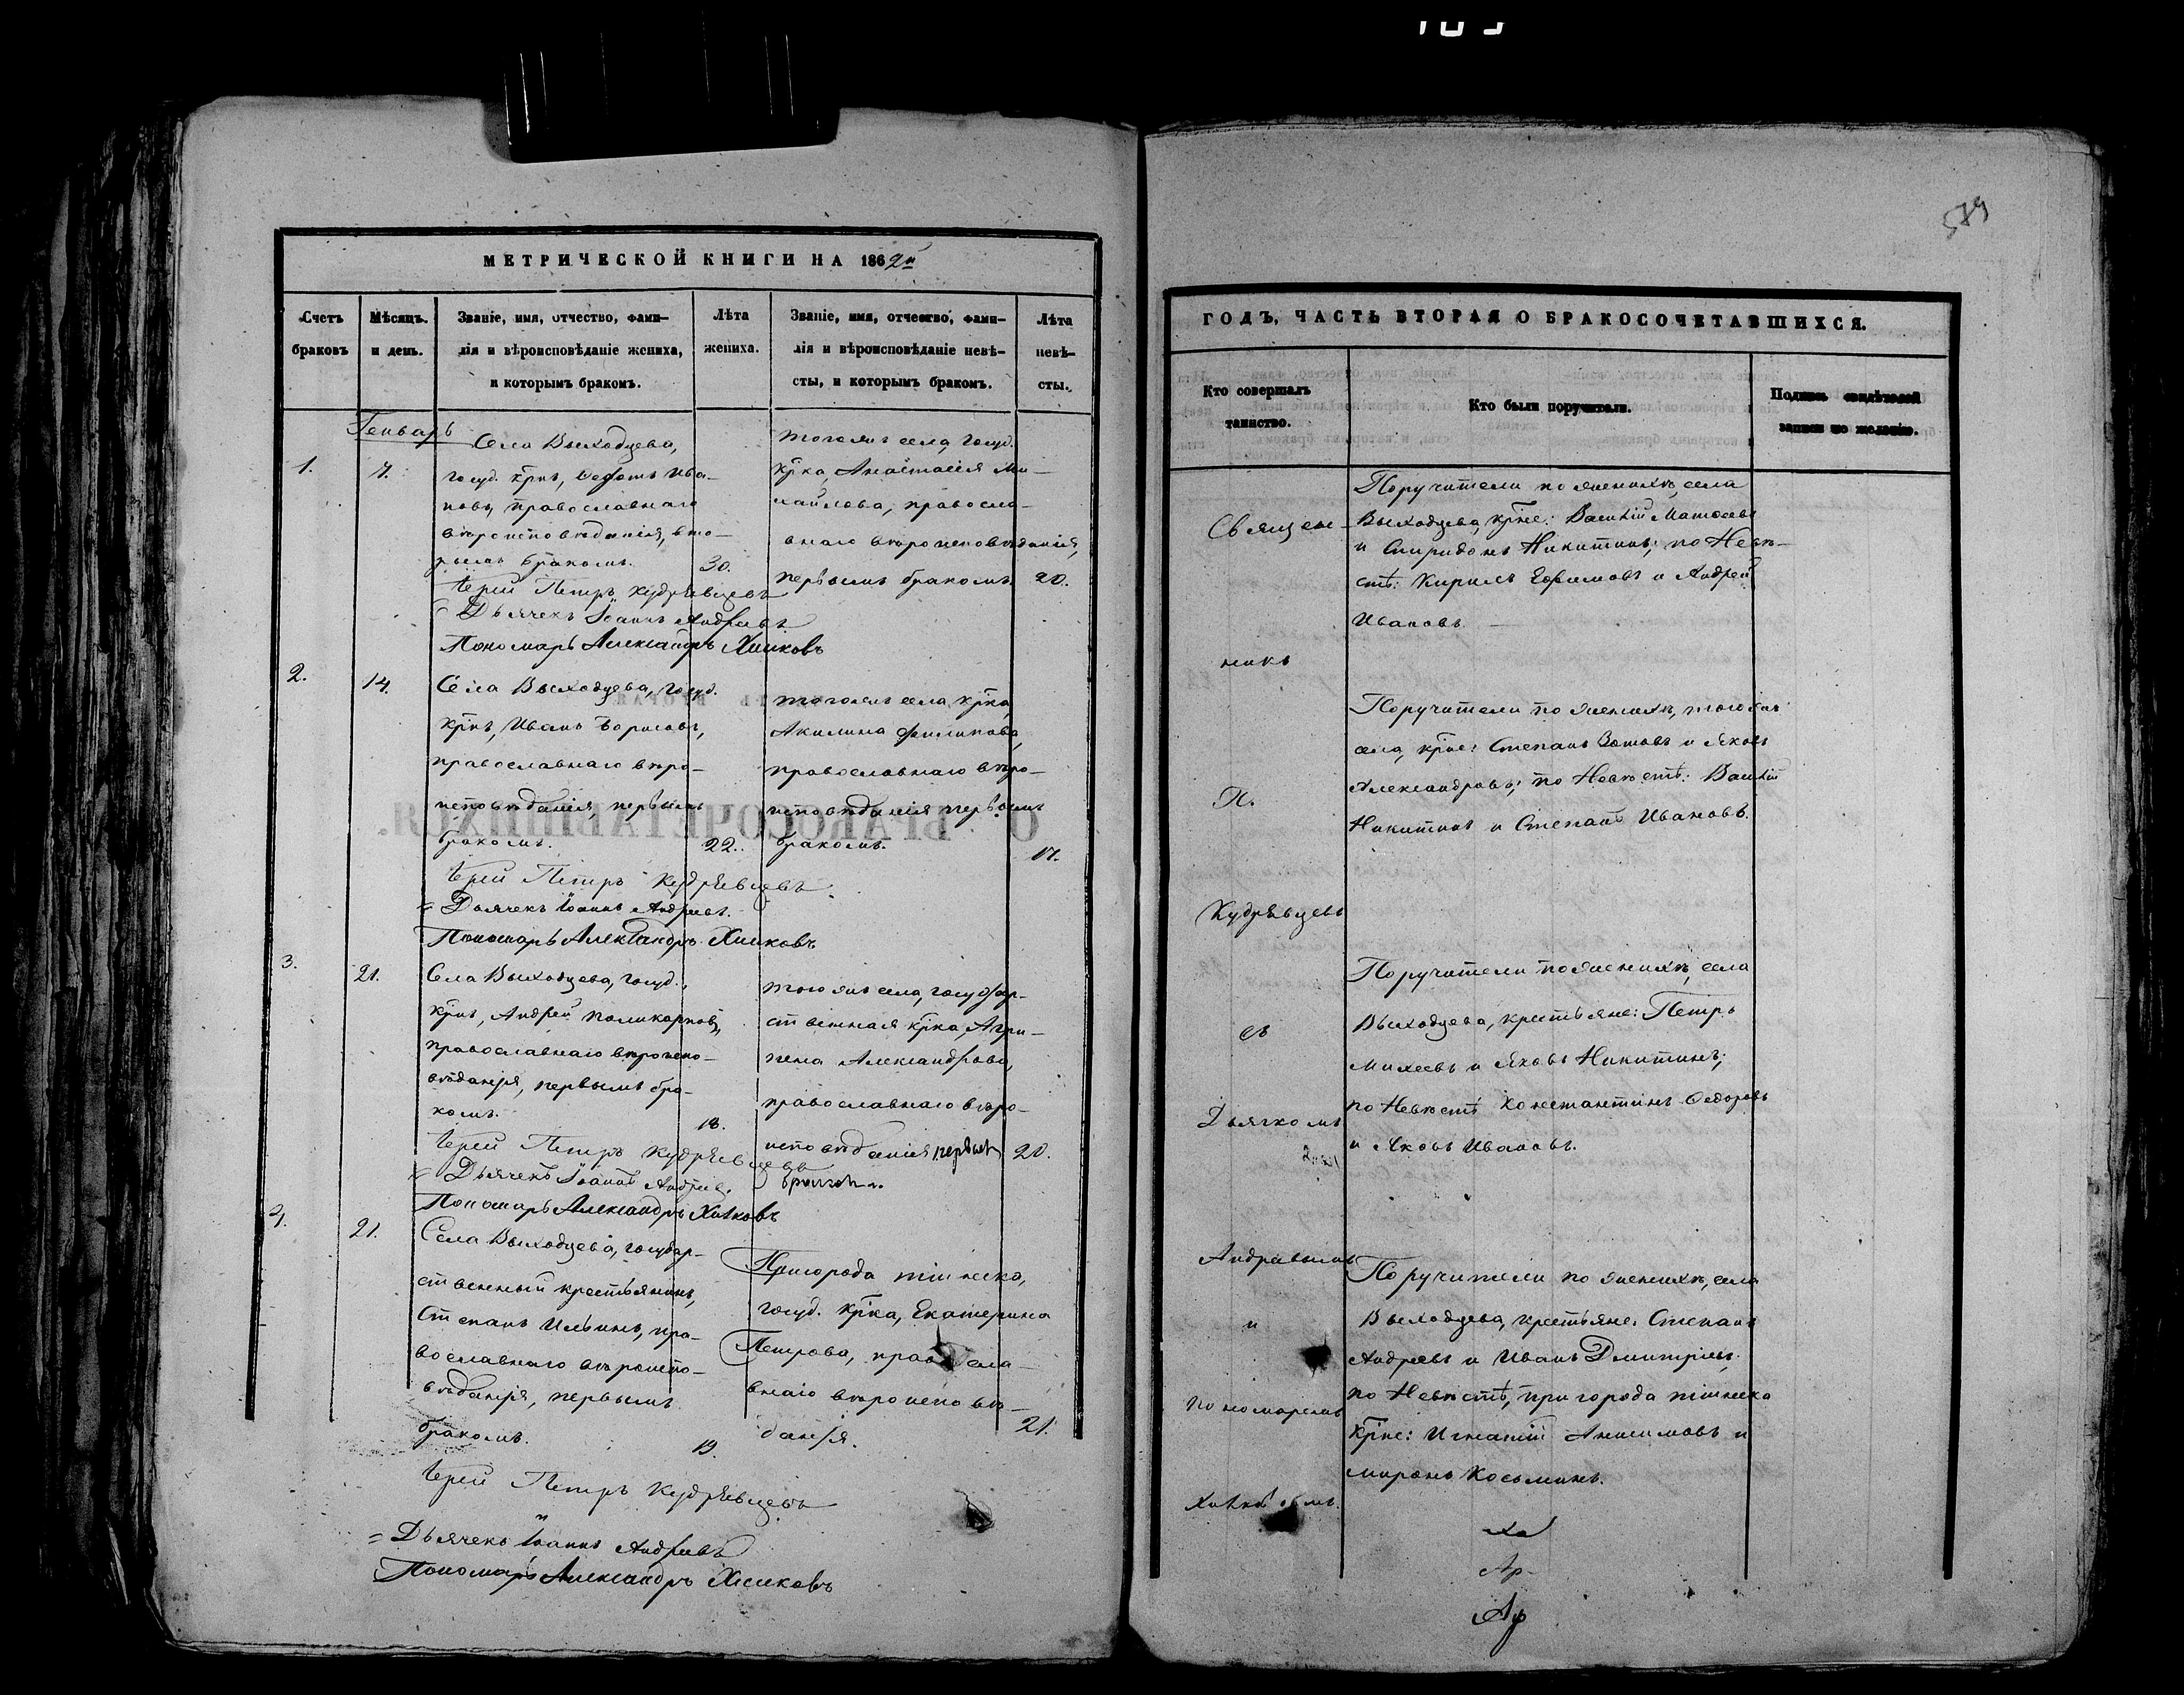 МЕТРИЧЕСКОЙ КНИГИ НА 1862й
Счетъ браковъ
Мѣсяцъ и день.
Званіе, имя, отчество, фами-
лія и вѣроисповѣданіе жениха,
и которымъ бракомъ.
Лѣта жениха.
Званіе, имя, отчество, фами-
лія и вѣроисповѣданіе невѣ-
сты, и которымъ бракомъ.
Лѣта невѣ-
сты.
Генварь
1.
7.
Села Выходцева,
госуд. крнъ, Ива-
новъ, православнаго
вѣроисповѣданія, вто-
рымъ бракомъ.
30.
тогожъ села, госуд.
крка, Анастасія Ми-
хайлова, правосла-
внаго вѣроисповѣданія,
первымъ бракомъ.
20.
Іерей Петръ Кудрявцевъ
Дьячекъ Іоаннъ Андреевъ
Пономарь Александръ
2.
14.
Села Выходцева, госуд.
крнъ, Иванъ Борисовъ,
православнаго вѣро-
исповѣданія, первымъ
бракомъ.
22.
тогожъ села, крка,
Акилина Филипова,
православнаго вѣро-
исповѣданія первымъ
бракомъ.
17.
Іерей Петръ Кудрявцевъ
Дьячекъ Іоаннъ Андреевъ.
Пономарь Александръ
3.
21.
Села Выходцева, госуд.
крнъ, Андрей Поликарповъ,
православнаго вѣроиспо-
вѣданія, первымъ бра-
комъ.
18.
тогожъ села, государ-
ственная крка, Агри-
пена Александрова,
православнаго вѣро-
исповѣданія первымъ
бракомъ.
20.
Іерей Петръ Кудрявцевъ
Дьячекъ Іоаннъ Андреевъ.
Пономарь Александръ
4.
21.
Села Выходцева, государ-
ственный крестьянинъ,
Степанъ Ильинъ, пра-
вославнаго вѣроиспо-
вѣданія, первымъ
бракомъ.
19.
Пригорода
госуд. крка, Екатерина
Петрова, правосла-
внаго вѣроисповѣ-
данія.
21.
Іерей Петръ Кудрявцевъ
Дьячекъ Іоаннъ Андреевъ
Пономарь Александръ
589
ГОДЪ, ЧАСТЬ ВТОРАЯ О БРАКОСОЧЕТАВШИХСЯ.
Кто совершалъ
таинство.
Кто были поручители.
Подпись свидѣтелей
записи по желанію.
Священ-
никъ
П.
Кудрявцевъ
съ
Дьячкомъ
Андреевымъ
и
пономаремъ
Поручители по женихѣ, села
Выходцева, крне: Василій Матвеевъ
и Спиридонъ Никитинъ; по Невѣ-
стѣ: Кирилъ Ефимовъ и Андрей
Ивановъ
Поручители по женихѣ, тогожъ
села, крне: Степанъ Зотовъ и Яковъ
Александровъ; по Невѣстѣ: Василій
Никитинъ и Степанъ Ивановъ.
Поручители по женихѣ, села
Выходцева, крестьяне: Петръ
Михеевъ и Яковъ Никитинъ;
по Невѣстѣ Константинъ Федоровъ
и Яковъ Ивановъ.
Поручители по женихѣ, села
Выходцева, крестьяне: Степанъ
Андреевъ и Иванъ Дмитріевъ.
по Невѣстѣ, пригорода
крне: Игнатій Анисимовъ и
Миронъ Косьминъ.